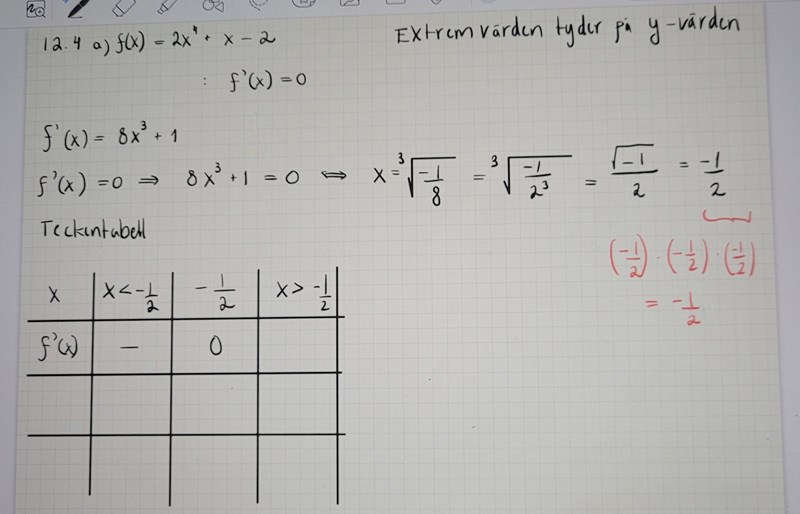 12.4 a) f(x) = 2x⁴ + x - 2
Extremvärden tyder på y-värden
: f'(x) = 0
f'(x) = 8x³ + 1
f'(x) = 0 ⇒ 8x³ + 1 = 0 ⇔ x = ³√(-1/8) = ³√(-1/2³) = √-1/2 = -1/2
(-1/2) · (-1/2) · (-1/2)
= -1/2
Teckentabell
x | x < -1/2 | -1/2 | x > -1/2
f'(x) | — | 0